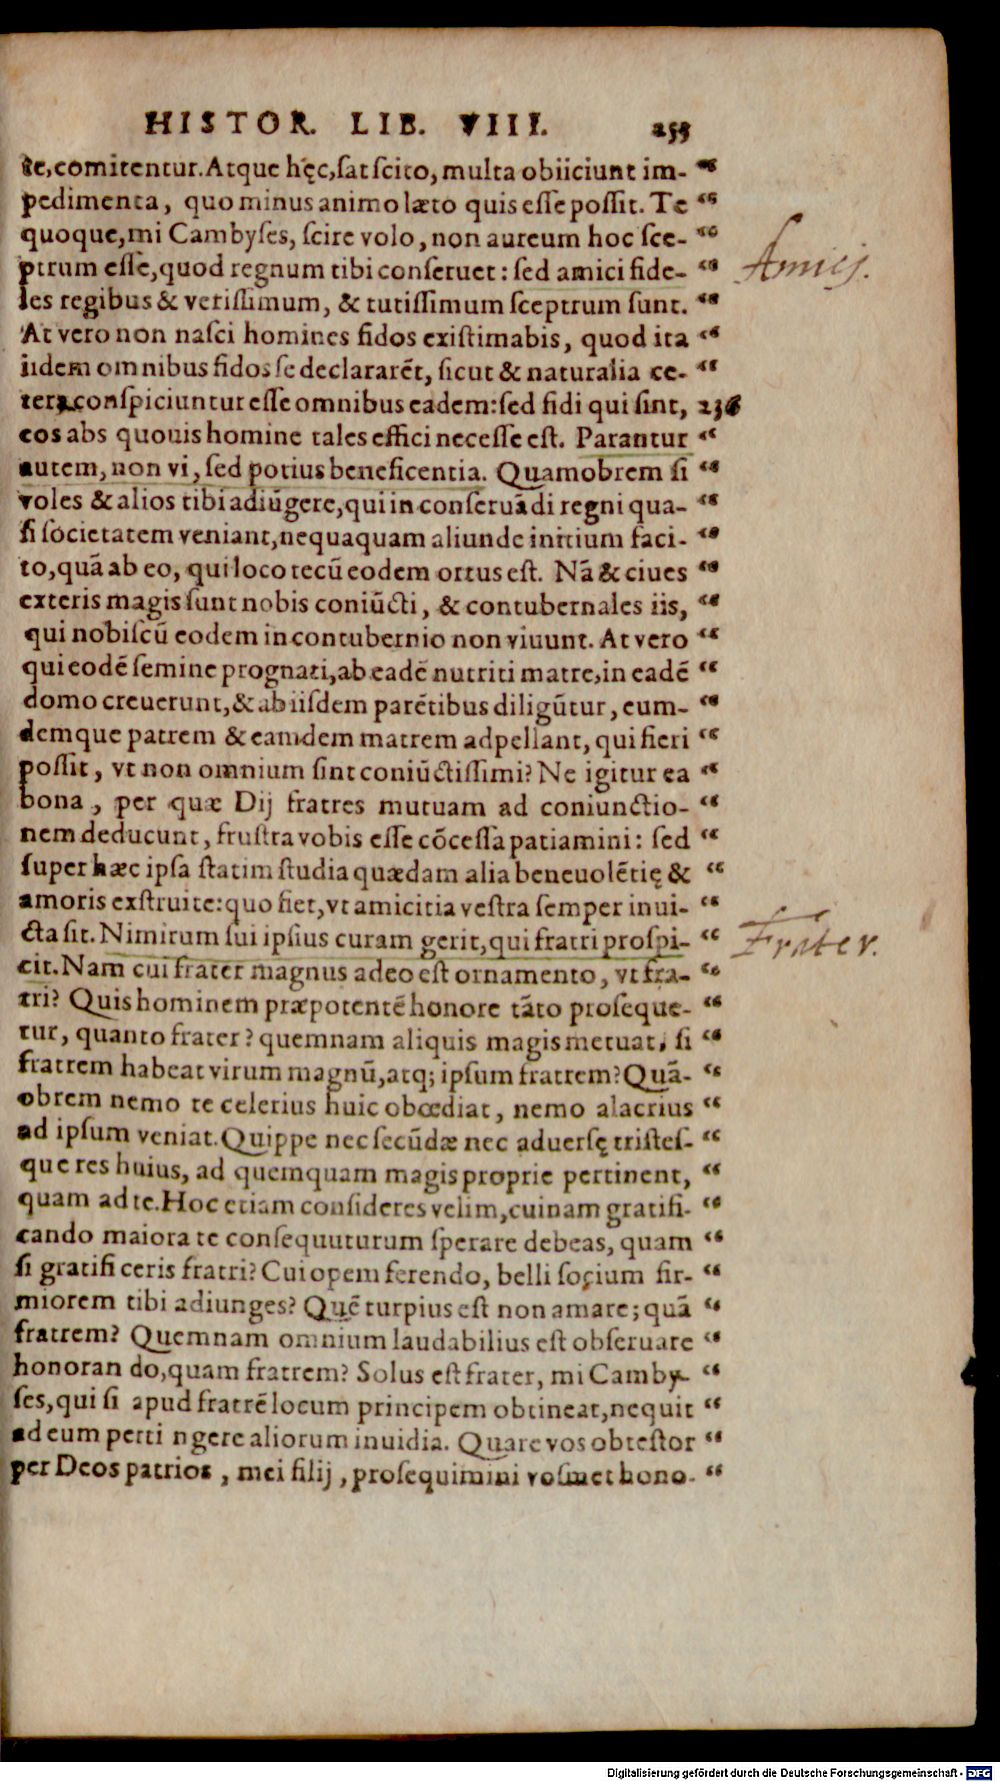 HISTOR. LIB. VIII. 255
te, comitentur. Atque hęc, sat scito, multa obiiciunt im- “
pedimenta, quo minus animo læto quis esse possit. Te “
quoque, mi Cambyses, scire volo, non aureum hoc sce- “
ptrum esse, quod regnum tibi conseruet: sed amici fide- “
Amicj.
les regibus & verissimum, & tutissimum sceptrum sunt. “
At vero non nasci homines fidos existimabis, quod ita “
iidem omnibus fidos se declararẽt, sicut & naturalia ce- “
tera conspiciuntur esse omnibus eadem: sed fidi qui sint, 236
eos abs quouis homine tales effici necesse est. Parantur “
autem, non vi, sed potius beneficentia. Quamobrem si “
voles & alios tibi adiũgere, qui in conseruãdi regni qua- “
si societatem veniant, nequaquam aliunde initium faci- “
to, quã ab eo, qui loco tecũ eodem ortus est. Nã & ciues “
exteris magis sunt nobis coniũcti, & contubernales iis, “
qui nobiscũ eodem in contubernio non viuunt. At vero “
qui eodẽ semine prognati, ab eadẽ nutriti matre, in eadẽ “
domo creuerunt, & ab iisdem parẽtibus diligũtur, eum- “
demque patrem & eamdem matrem adpellant, qui fieri “
possit, vt non omnium sint coniũctissimi? Ne igitur ea “
bona, per quæ Dij fratres mutuam ad coniunctio- “
nem deducunt, frustra vobis esse cõcessa patiamini: sed “
super hæc ipsa statim studia quædam alia beneuolẽtię & “
amoris exstruite: quo fiet, vt amicitia vestra semper inui- “
cta sit. Nimirum sui ipsius curam gerit, qui fratri prospi- “
Frater.
cit. Nam cui frater magnus adeo est ornamento, vt fra- “
tri? Quis hominem præpotentẽ honore tãto proseque- “
tur, quanto frater? quemnam aliquis magis metuat, si “
fratrem habeat virum magnũ, atq; ipsum fratrem? Quã- “
obrem nemo te celerius huic obœdiat, nemo alacrius “
ad ipsum veniat. Quippe nec secũdæ nec aduersę tristes- “
que res huius, ad quemquam magis proprie pertinent, “
quam ad te. Hoc etiam consideres velim, cuinam gratifi- “
cando maiora te consequuturum sperare debeas, quam “
si gratificeris fratri? Cui opem ferendo, belli socium fir- “
miorem tibi adiunges? Quẽ turpius est non amare; quã “
fratrem? Quemnam omnium laudabilius est obseruare “
honorando, quam fratrem? Solus est frater, mi Camby- “
ses, qui si apud fratrẽ locum principem obtineat, nequit “
ad eum pertingere aliorum inuidia. Quare vos obtestor “
per Deos patrios, mei filij, prosequimini vosmet hono- “
Digitalisierung gefördert durch die Deutsche Forschungsgemeinschaft - DFG